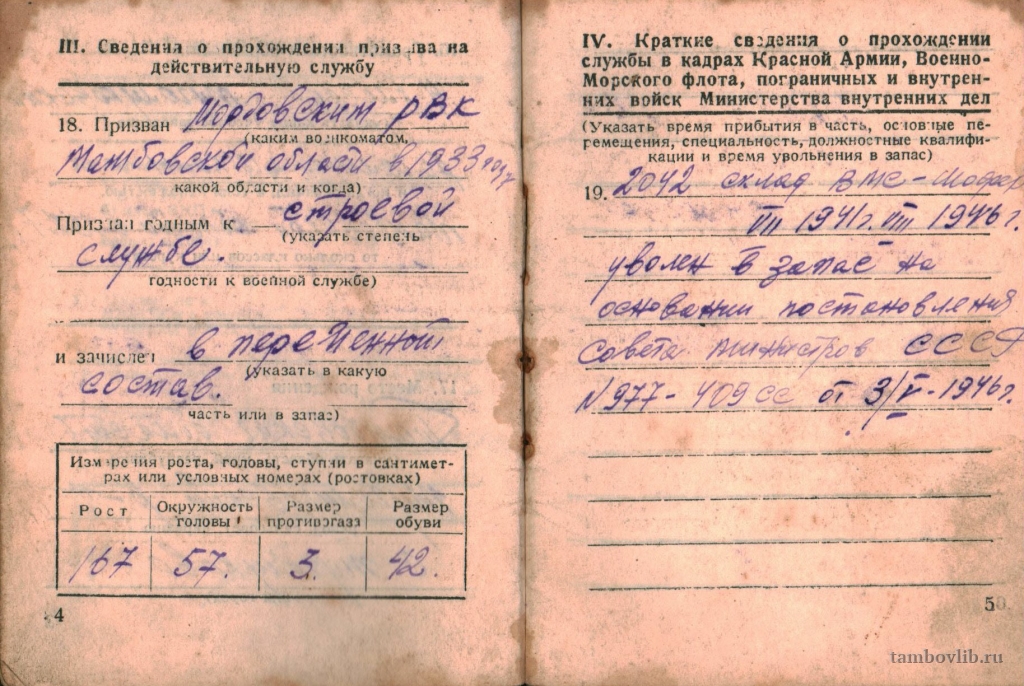 III. Сведения о прохождении призыва на
действительную службу
18. Призван Мордовским РВК
(каким военкоматом,
Тамбовской области в 1933 году
какой области и когда)
Признан годным к строевой
(указать степень
службе.
годности к военной службе)
и зачислен в переменный
(указать в какую
состав.
часть или в запас)
Измерения роста, головы, ступни в сантимет-
рах или условных номерах (ростовках)
Рост Окружность головы Размер противогаза Размер обуви
167 57. 3. 42.
4
IV. Краткие сведения о прохождении
службы в кадрах Красной Армии, Военно-
Морского флота, пограничных и внутрен-
них войск Министерства внутренних дел
(Указать время прибытия в часть, основные пе-
ремещения, специальность, должностные квалифи-
кации и время увольнения в запас)
19. 2042 склад ВМС - Шофер
VIII 1941г. VIII 1946г.
уволен в запас на
основании постановления
Совета министров СССР
№977-409сс от 3/V-1946г.
5
tambovlib.ru